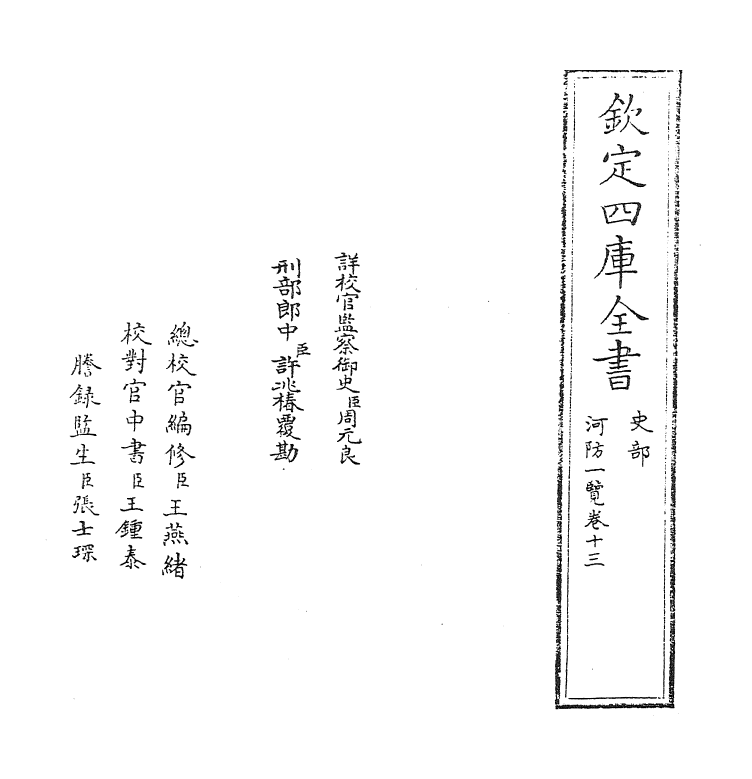 欽定四庫全書
史部
河防一覽卷十三
詳校官監察御史臣周元良
刑部郎中臣許兆椿覆勘
總校官編修臣王燕緒
校對官中書臣王鍾泰
謄録監生臣張士琛